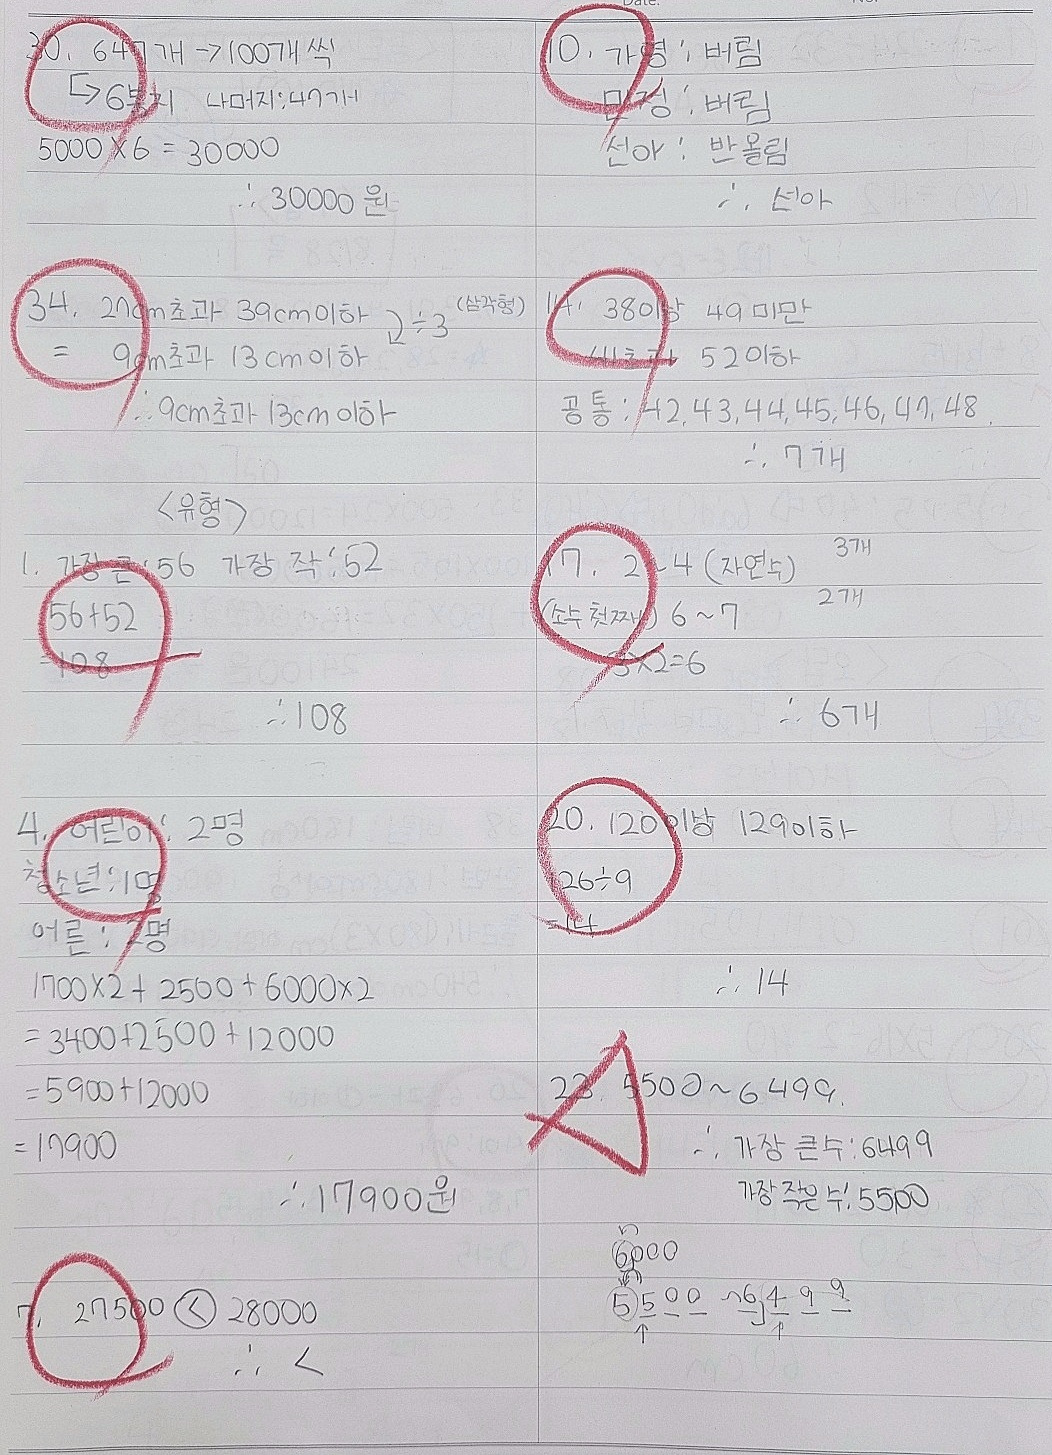 30. 647개 → 100개씩
↳ 6봉지 나머지:47개
5000 × 6 = 30000
∴ 30000원
34. 27cm초과 39cm이하 ÷3 (삼각형)
= 9cm초과 13cm이하
∴ 9cm초과 13cm이하
<유형>
1. 가장 큰:56 가장 작:52
56+52
=108
∴ 108
4. 어린이: 2명
청소년:1명
어른: 2명
1700×2 + 2500 + 6000×2
= 3400+2500+12000
= 5900+12000
= 17900
∴ 17900원
7. 27500 < 28000
∴ <
10. 가영: 버림
민정: 버림
선아: 반올림
∴ 선아
14. 38이상 49미만
41초과 52이하
공통: 42, 43, 44, 45, 46, 47, 48
∴ 7개
17. 2~4 (자연수) 3개
(소수 첫째) 6~7 2개
3×2=6
∴ 6개
20. 120이상 129이하
126÷9
=14
∴ 14
23. 5500~6499.
∴ 가장 큰수:6499
가장 작은 수:5500
6000
5500 ~6499